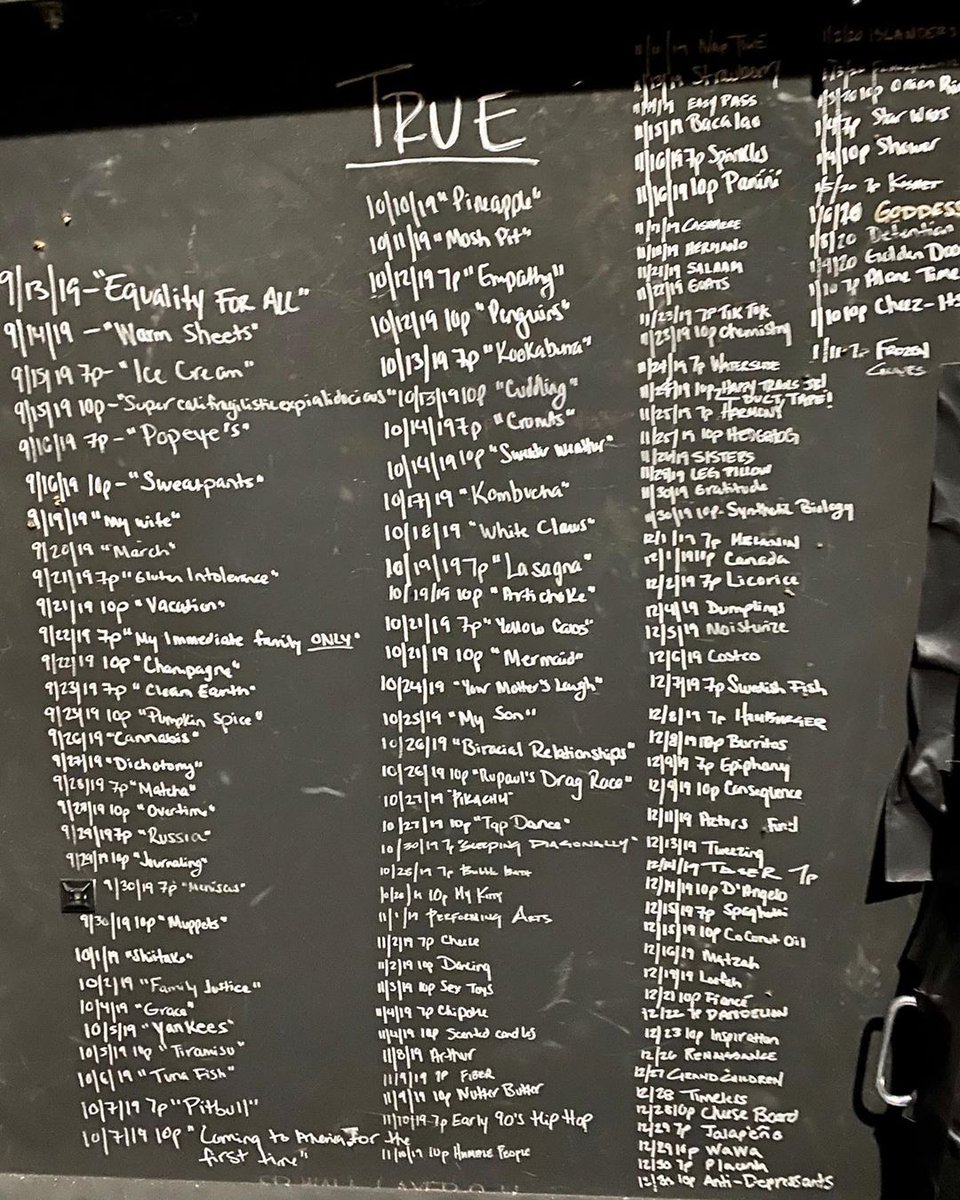 TRUE
9/13/19-"Equality FOR ALL"
9/14/19 -"Warm Sheets"
9/15/19 7p- "Ice Cream"
9/15/19 10p-"Supercalifragilisticexpialidocious"
9/16/19 7p- "Popeye's"
9/16/19 10p-"Sweatpants"
9/19/19 "My wife"
9/20/19 "March"
9/21/19 7p "Gluten Intolerance"
9/21/19 10p "Vacation"
9/22/19 7p "My Immediate family ONLY"
9/22/19 10p "Champagne"
9/23/19 7p "Clean Earth"
9/23/19 10p "Pumpkin Spice"
9/26/19 "Cannabis"
9/27/19 "Dichotomy"
9/28/19 7p "Matcha"
9/28/19 10p "Overtime"
9/29/19 7p "Russia"
9/29/19 10p "Journaling"
9/30/19 7p "Meniscus"
9/30/19 10p "Muppets"
10/1/19 "Shiitake"
10/2/19 "Family Justice"
10/4/19 "Grace"
10/5/19 "Yankees"
10/5/19 10p "Tiramisu"
10/6/19 "Tuna Fish"
10/7/19 7p "Pitbull"
10/7/19 10p "Coming to America for the
first time"
10/10/19 "Pineapple"
10/11/19 "Mosh Pit"
10/12/19 7p "Empathy"
10/12/19 10p "Penguins"
10/13/19 7p "Kookaburra"
10/13/19 10p "Cuddling"
10/14/19 7p "Cronuts"
10/14/19 10p "Sweater weather"
10/17/19 "Kombucha"
10/18/19 "White Claws"
10/19/19 7p "Lasagna"
10/19/19 10p "Artichoke"
10/21/19 7p "Yellow Cabs"
10/21/19 10p "Mermaid"
10/24/19 "Your Mother's Laugh"
10/25/19 "My Son"
10/26/19 "Biracial Relationships"
10/26/19 10p "Rupaul's Drag Race"
10/27/19 "PIKACHU"
10/27/19 10p "Tap Dance"
10/30/19 7p "SLEEPING DIAGONALLY"
10/28/19 7p Bubble Bath
10/28/19 10p My Kitty
11/1/19 PERFORMING ARTS
11/2/19 7p Cheese
11/2/19 10p Dancing
11/3/19 10p Sex Toys
11/4/19 7p Chipotle
11/4/19 10p Scented candles
11/8/19 Arthur
11/9/19 7P FIBER
11/9/19 10p Nutter Butter
11/10/19 7p Early 90's Hip Hop
11/10/19 10p Humble People
11/11/19 Nap Time
11/13/19 Strawberry
11/14/19 EASY PASS
11/15/19 Bacalao
11/16/19 7p Sprinkles
11/16/19 10p Panini
11/17/19 CASHMERE
11/18/19 HERMANO
11/21/19 SALAAM
11/22/19 GOATS
11/23/19 7p TIK TOK
11/23/19 10p Chemistry
11/24/19 7p WATERSLIDE
11/24/19 10p HAPPY TRAILS JE!
DUCT TAPE!
11/25/19 7p HARMONY
11/25/19 10p HEDGEHOG
11/26/19 SISTERS
11/29/19 LEG PILLOW
11/30/19 Gratitude
11/30/19 10p- Synthetic Biology
12/1/19 7p MELANIN
12/1/19 10p Canada
12/2/19 7p Licorice
12/4/19 Dumplings
12/5/19 Moisturize
12/6/19 Costco
12/7/19 7p Swedish Fish
12/8/19 7p HAMBURGER
12/8/19 10p Burritos
12/9/19 7p Epiphany
12/9/19 10p Consequence
12/11/19 Actors Fund
12/13/19 Tweezing
12/14/19 TASER 7p
12/14/19 10p D'Angelo
12/15/19 7p Spaghetti
12/15/19 10p Coconut Oil
12/16/19 Matzah
12/19/19 Loofah
12/21 10p Fiancé
12/22 7p DANDELION
12/23 10p Inspiration
12/26 RENAISSANCE
12/27 GRANDCHILDREN
12/28 Timeless
12/28 10p Cheese Board
12/29 7p Jalapeño
12/29 10p WaWa
12/30 7p Placenta
12/30 10p Anti-Depressants
1/2/20 ISLANDERS
1/3/20
1/3/20 10p Onion Ri
1/4 7p Star Wars
1/4 10p Shower
1/5/20 7p Kismet
1/6/20 GODDESS
1/8/20 Detention
1/9/20 Golden Doo
1/10 7p Alone Time
1/10 10p Cheez-Its
1/11 7p FROZEN
GRAPES